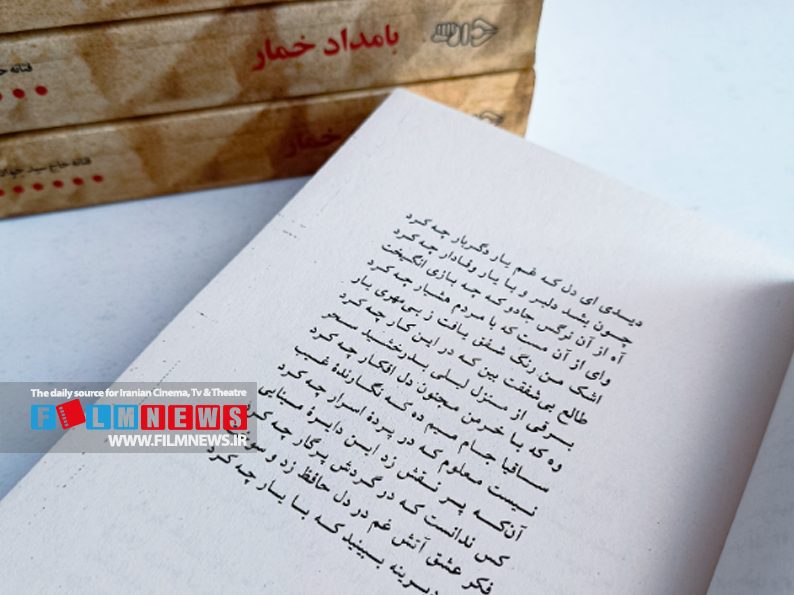 بامداد خمار
فتانه حا
خمار
فتانه حاج سید جوا
دیدی ای دل که غم یار دگربار چه کرد
چون بشد دلبر و با یار وفادار چه کرد
آه از آن نرگس جادو که چه بازی انگیخت
وای از آن مست که با مردم هشیار چه کرد
اشک من رنگ شفق یافت ز بی‌مهری یار
طالع بی‌شفقت بین که در این کار چه کرد
برقی از منزل لیلی بدرخشید سحر
وه که با خرمن مجنون دل افکار چه کرد
ساقیا جام میم ده که نگارندهٔ غیب
نیست معلوم که در پردهٔ اسرار چه کرد
آن‌که پر نقش زد این دایرهٔ مینایی
کس ندانست که در گردش پرگار چه کرد
فکر عشق آتش غم در دل حافظ زد و سوخت
دیرینه ببینید که با یار چه کرد
The daily source for Iranian Cinema, Tv & Theatre
FILMNEWS
WWW.FILMNEWS.IR